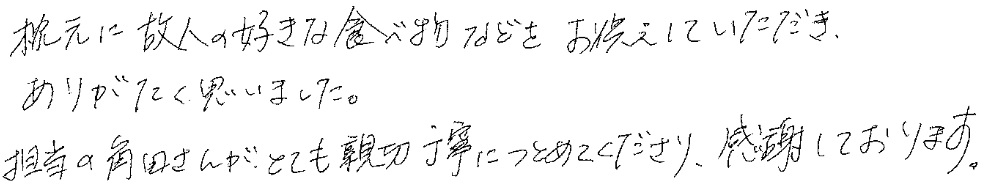 枕元に故人の好きな食べ物などをお供えしていただき、
ありがたく思いました。
担当の角田さんがとても親切丁寧につとめてくださり、感謝しております。